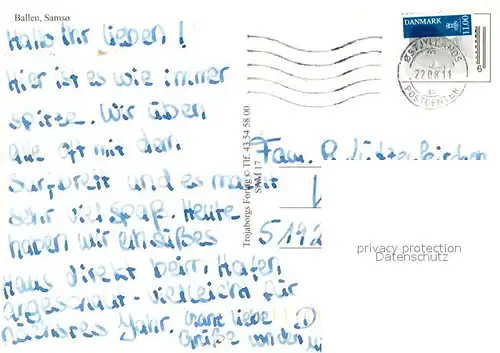 Ballen, Samsø
Hallo Ihr Lieben!
Hier ist es wie immer
spitze. Wir üben
alle oft mit dem
Surfbrett und es macht
sehr viel Spaß. Heute
haben wir ein süßes
Haus direkt beim Hafen
angeschaut - vielleicht für
nächstes Jahr. Ganz liebe
Grüße von den
Trojaborgs Forlag © Tlf. 43 54 58 00
SAM 17
DANMARK
11.00
ØSTJYLLANDS
22.08.11
POSTCENTER
6
Fam.
privacy protection
Datenschutz